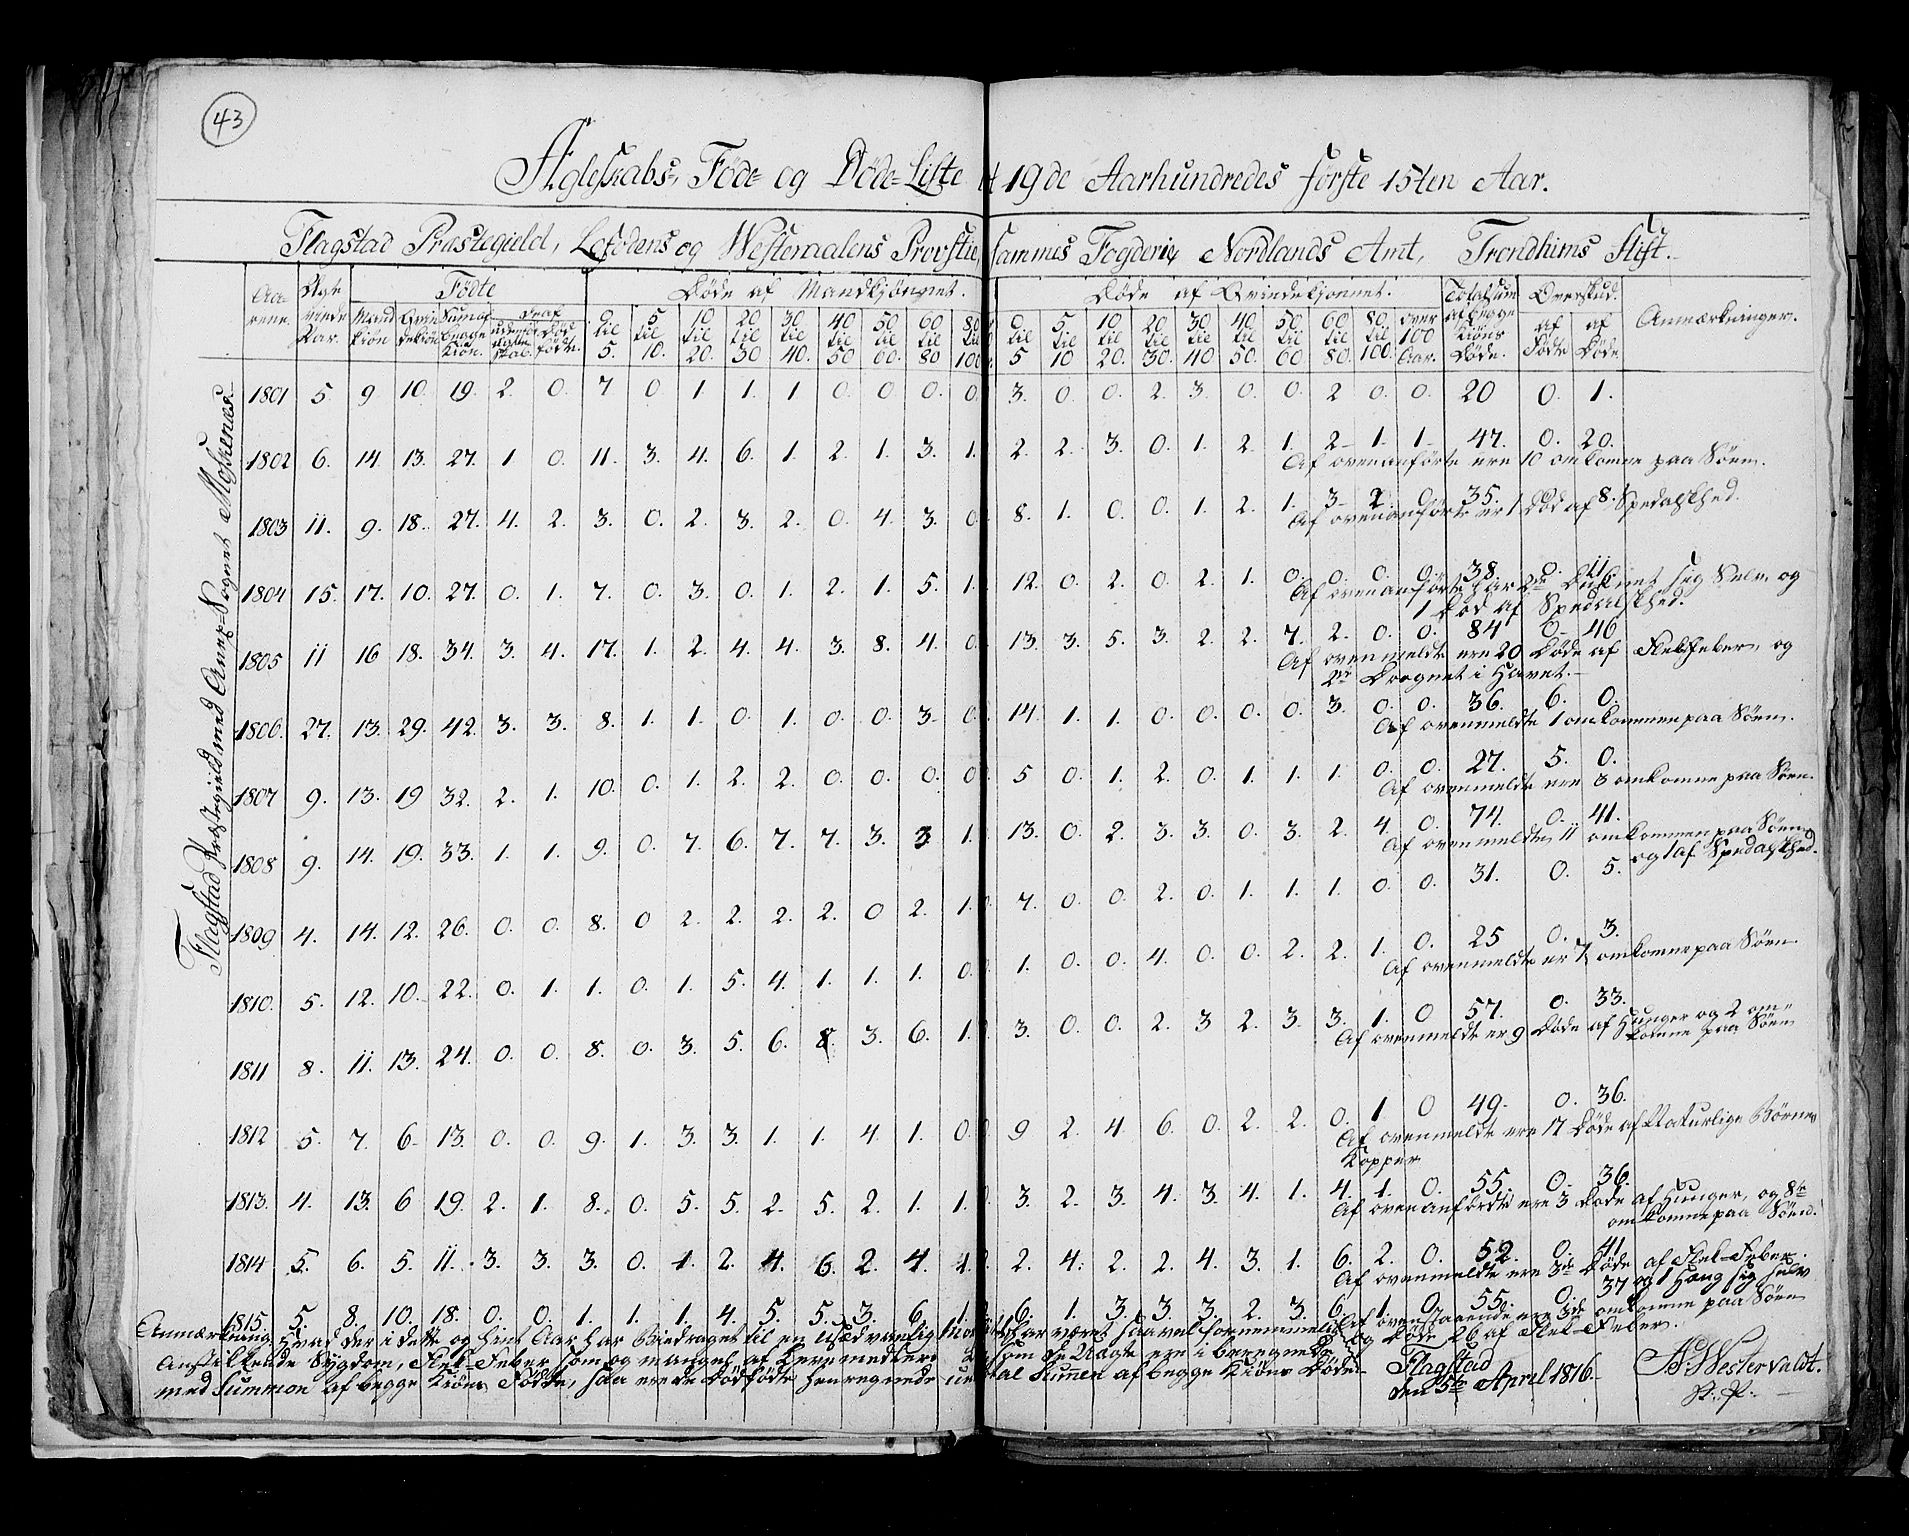 43
Ægteskabs, Föde- og Döde-Liste 19de Aarhundredes förste 15ten Aar.
Flagstad Præstegield, Lofodens og Westeraalens Provstie, sammes Fogderie, Nordlands Amt, Trondhiems Stift.
Flagstad Præstegield med Anex-Sognet Moskenæs.
Aarene. Ægteviede Par. Födte Döde af Mandkjönnet. Döde af Qvindekjönnet. Totalsum af begge Kiöns Döde. Overskud. Anmærkninger.
Mandkiön Qvindekiön Sum af begge Kiön. Deraf Dödfödte. af Födte af Döde
0 til 5. 5 til 10. 10 til 20. 20 til 30 30 til 40. 40 til 50 50 til 60. 60 til 80 80 til 100 0 til 5 5 til 10 10 til 20. 20 til 30. 30 til 40 40 til 50. 50 til 60 60 til 80. 80 til 100. over 100 Aar.
1801 5 9. 10. 19. 2. 0. 7 0 1. 1. 1 0 0. 0. 0. 0. 3. 0. 0. 2. 3. 0. 0. 2 0. 0. 20 0. 1.
1802 6. 14. 13. 27. 1 0. 11. 3. 4. 6. 1. 2. 1. 3. 1. 2. 2. 3. 0. 1. 2. 1. 2 1. 1. 47. 0. 20.
Af ovenanförte ere 10 omkomne paa Söen.
1803 11. 9. 18. 27. 4. 2. 3. 0. 2. 3. 2. 0 4. 3. 0. 8. 1. 0. 0. 1. 2. 1. 3 2. 0. 35. 8.
Af ovenanförte er 1 Död af Spedalskhed.
1804 15. 17. 10. 27. 0. 1. 7. 0. 3. 0. 1. 2. 1. 5. 1. 12. 0. 2. 0. 2. 1. 0. 0. 0. 0. 38. 0. 11.
Af ovenanförte har 2de Druknet sig Selv og
1 Död af Spedalskhed.
1805 11 16 18. 34. 3. 4. 17. 1. 2. 4. 4. 3. 8. 4. 0. 13. 3. 5. 3. 2. 2. 7. 2. 0. 0. 84 0. 46
Af ovenmeldte ere 20 Döde af Flekfeber, og
2de Drognet i Havet.
1806. 27. 13. 29. 42. 3. 3. 8. 1. 1. 0. 1. 0. 0. 3. 0. 14. 1. 1. 0. 0. 0. 0. 3. 0. 0. 36. 6. 0.
Af ovenmeldte 1 omkommen paa Söen.
1807 9. 13. 19 32. 2. 1. 10. 0. 1. 2. 2. 0. 0. 0. 0. 5 0. 1. 2. 0. 1. 1. 1. 0. 0. 27. 5. 0.
Af ovenmeldte ere 3 omkomne paa Söen.
1808 9. 14. 19. 33. 1. 1. 9. 0. 7. 6. 7. 7. 3. 3 1. 13. 0. 2. 3. 3. 0. 3. 2. 4 0. 74. 0. 41.
Af ovenmeldte 11 omkommen paa Söen
og 1 af Spedalskhed.
1809 4. 14. 12. 26. 0. 0. 8. 0 2. 2. 2. 2. 0 2. 1. 7. 0. 0. 2. 0. 1. 1. 1. 0 0. 31. 0. 5.
1810. 5. 12. 10. 22. 0. 1. 1. 0. 1. 5. 4. 1. 1. 1. 0. 1. 0. 0. 4. 0. 0. 2. 2. 1. 0. 25 0. 3.
Af ovenmeldte er 7 omkomne paa Söen.
1811 8. 11. 13. 24. 0. 0. 8. 0. 3. 5. 6. 8. 3. 6. 1. 3. 0. 0. 2. 3 2. 3. 3. 1. 0 57. 0. 33.
Af ovenmeldte er 9 Döde af Hunger og 2 om-
komne paa Söen
1812 5. 7. 6. 13. 0. 0. 9. 1. 3. 3. 1. 1. 4. 1. 0. 9 2. 4 6. 0. 2. 2. 0. 1 0 49. 0. 36.
Af ovenmeldte ere 17 Döde af Naturlige Börne
Kopper
1813. 4. 13. 6 19. 2. 1. 8. 0. 5. 5. 2. 5. 2. 1. 1. 3. 2. 3. 4. 3. 4. 1. 4. 1. 0. 55. 0. 36.
Af ovenanförte ere 3 Döde af Hunger, og 8te
omkomne paa Söen.
1814 5. 6. 5. 11. 3. 3. 3. 0. 1. 2. 4. 6. 2. 4. 1. 2. 4. 2. 2. 4. 3. 1. 6. 2. 0. 52. 0. 41
Af ovenmeldte ere 3de Döde af Flek-Feber.
og 1 Hæng sig selv
1815. 5. 8. 10. 18. 0. 0. 1. 1. 1. 4. 5. 5. 3. 6. 1. 6. 1. 3. 3. 3. 2. 3 6. 1. 0. 55. 0. 37
Af ovenstaaende ere 3de omkomne paa Söen
og Döde 26 af Flek-Feber.
Anmærkning, Hvad der i dette og hint Aar har Bidraget til en usædvanlig har været saavel
Anstikkende Sygdom, Flek-Feber, som og mangel af Levnemedler som de
med Summen af begge Kiöns Födte, saa ere de Dödfödte henregnede under Total Sumen af begge Kiöns Döde.
Flagstad
den 5te April 1816.
Westervaldt.
S. P.